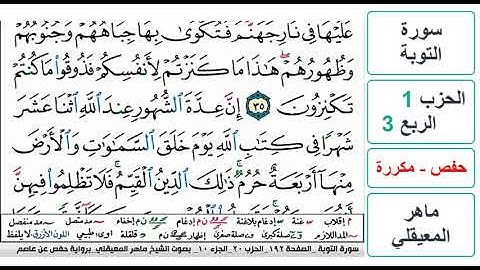 سورة
التوبة
الحزب 1
الربع 3
حفص - مكررة
ماهر
المعيقلي
عَلَيْهَا فِي نَارِ جَهَنَّمَ فَتُكْوَىٰ بِهَا جِبَاهُهُمْ وَجُنُوبُهُمْ
وَظُهُورُهُمْ ۖ هَٰذَا مَا كَنَزْتُمْ لِأَنفُسِكُمْ فَذُوقُوا مَا كُنتُمْ
تَكْنِزُونَ ٣٥ إِنَّ عِدَّةَ الشُّهُورِ عِندَ اللَّهِ اثْنَا عَشَرَ
شَهْرًا فِي كِتَابِ اللَّهِ يَوْمَ خَلَقَ السَّمَاوَاتِ وَالْأَرْضَ
مِنْهَا أَرْبَعَةٌ حُرُمٌ ۚ ذَٰلِكَ الدِّينُ الْقَيِّمُ ۚ فَلَا تَظْلِمُوا فِيهِنَّ
سورة التوبة . الصفحة ١٩٢ . الحزب ٢٠ . الجزء ١٠ . بصوت الشيخ ماهر المعيقلي . برواية حفص عن عاصم